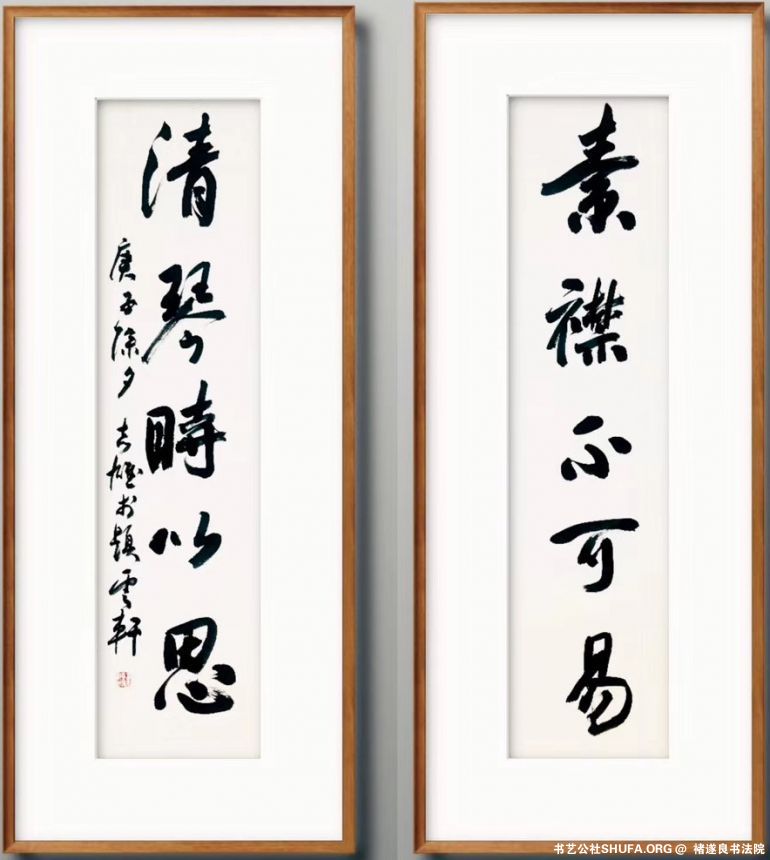 素襟不可易
清琴時以思
庚子除夕 雄 雲軒
书艺公社SHUFA.ORG @ 褚遂良书法院